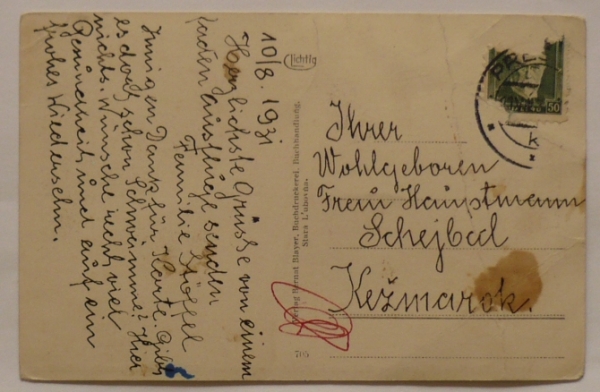 10/8. 1931
Herzlichste Grüsse von einem
ausflüge senden
Familie
Innigen Dank für Karte. Gibt
es dort schon Schwämme? Hier
nichts. Wünsche recht viel
Gesundheit und auf ein
frohes Wiedersehn.
Lichtig
Verlag Ernst Blayer, Buchdruckerei, Buchhandlung,
Stará L'ubovňa.
Ihrer
Wohlgeboren
Frau Hauptmann
Schejbal
Kežmarok.
50